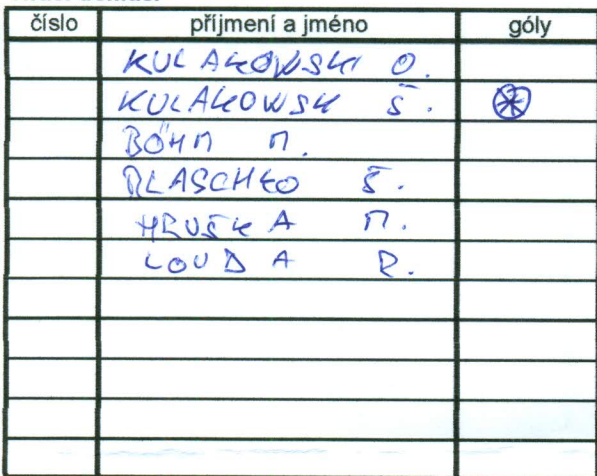 číslo příjmení a jméno góly
KULAKOWSKI O.
KULAKOWSK Š.
BÖHM M.
BLASCHKO Š.
HRUŠKA M.
LOUDA R.